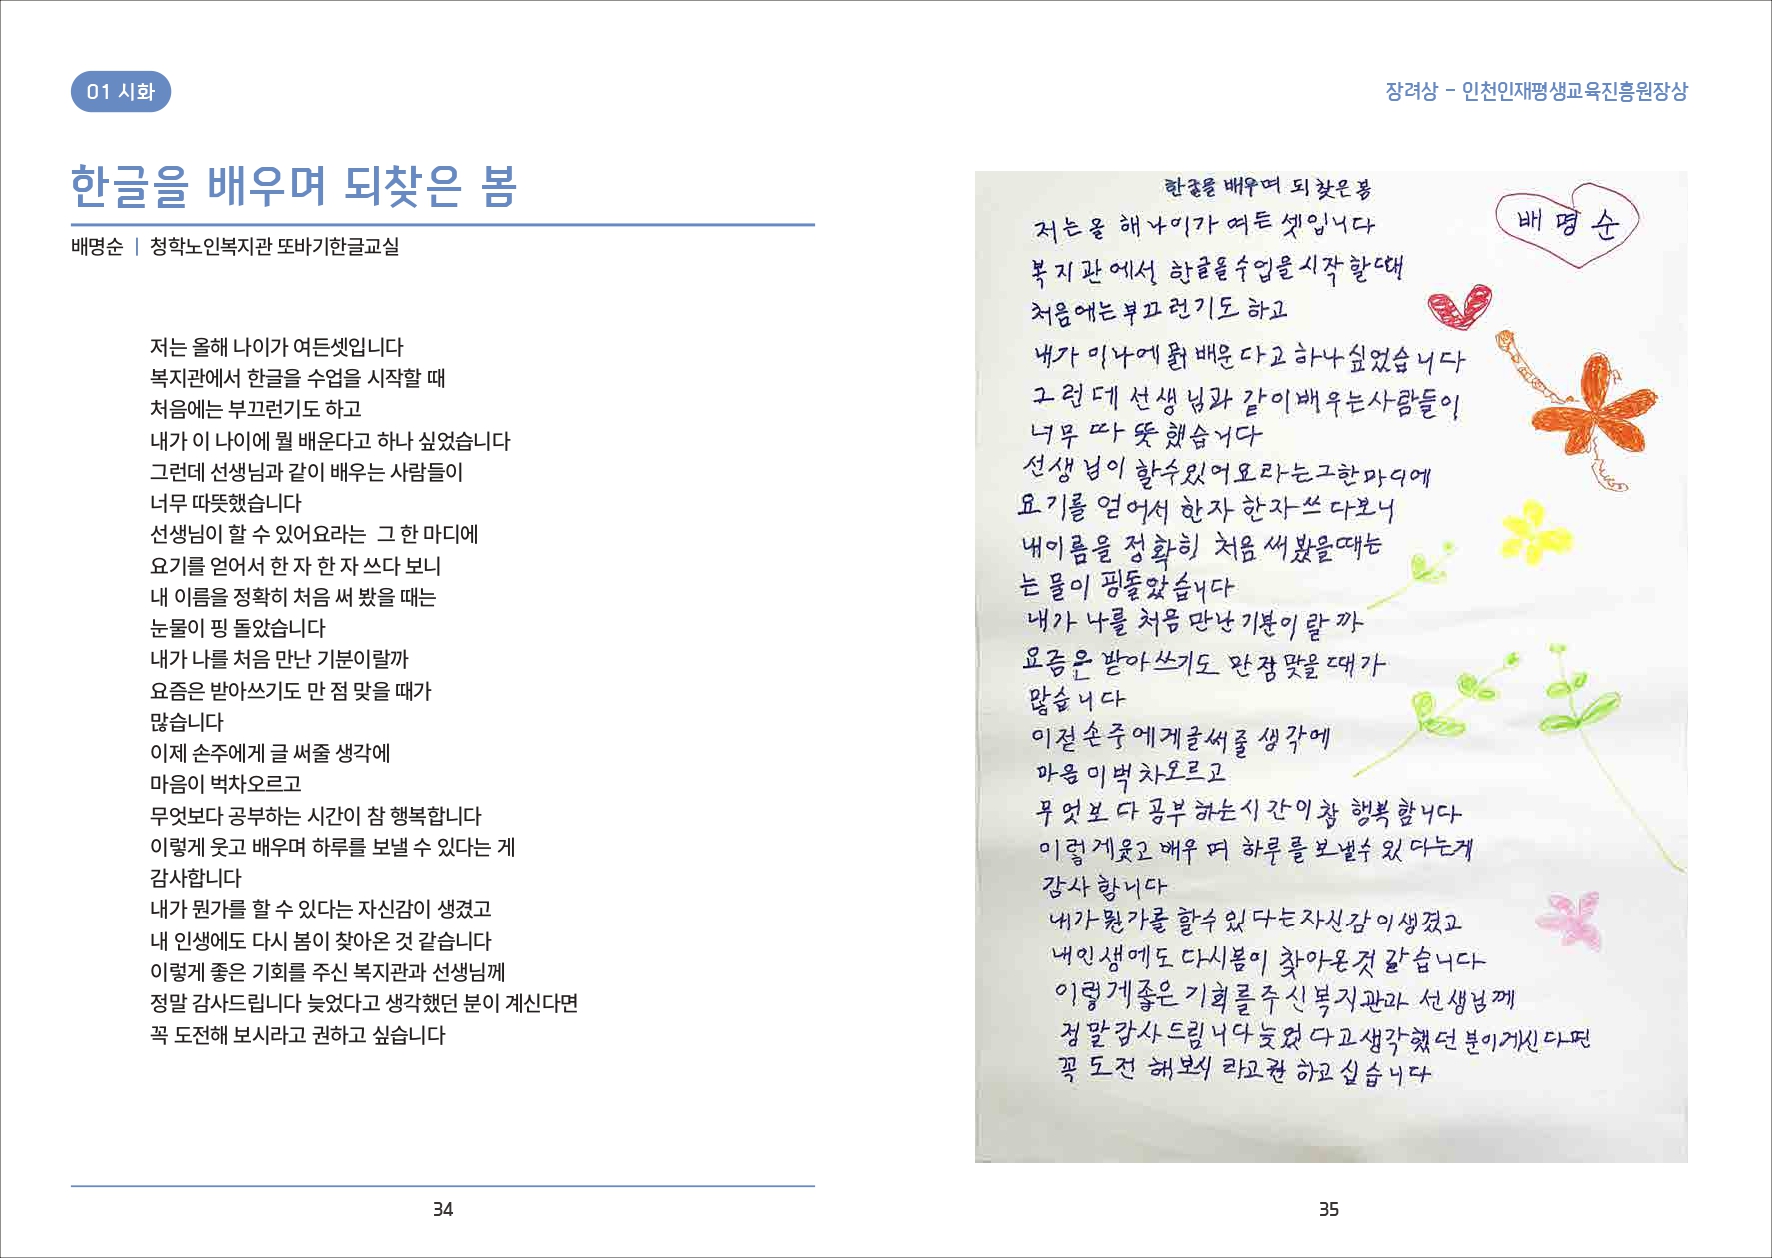 01 시화
한글을 배우며 되찾은 봄
배명순 | 청학노인복지관 또바기한글교실
저는 올해 나이가 여든셋입니다
복지관에서 한글을 수업을 시작할 때
처음에는 부끄런기도 하고
내가 이 나이에 뭘 배운다고 하나 싶었습니다
그런데 선생님과 같이 배우는 사람들이
너무 따뜻했습니다
선생님이 할 수 있어요라는 그 한 마디에
요기를 얻어서 한 자 한 자 쓰다 보니
내 이름을 정확히 처음 써 봤을 때는
눈물이 핑 돌았습니다
내가 나를 처음 만난 기분이랄까
요즘은 받아쓰기도 만 점 맞을 때가
많습니다
이제 손주에게 글 써줄 생각에
마음이 벅차오르고
무엇보다 공부하는 시간이 참 행복합니다
이렇게 웃고 배우며 하루를 보낼 수 있다는 게
감사합니다
내가 뭔가를 할 수 있다는 자신감이 생겼고
내 인생에도 다시 봄이 찾아온 것 같습니다
이렇게 좋은 기회를 주신 복지관과 선생님께
정말 감사드립니다 늦었다고 생각했던 분이 계신다면
꼭 도전해 보시라고 권하고 싶습니다
34
장려상 - 인천인재평생교육진흥원장상
한글을 배우며 되찾은 봄
배명순
저는올 해나이가 여든셋입니다
복지관에서 한글을수업을시작할때
처음에는부끄런기도 하고
내가 이나에 뭙 배운다고하나싶었습니다
그런데 선생님과 같이배우는사람들이
너무 따뜻했습니다
선생님이 할수있어요라는그한마디에
요기를 얻어서 한자 한자쓰다보니
내이름을 정확히 처음써봤을때는
는물이 핑돌았습니다
내가 나를처음만난기분이랄까
요즘은 받아쓰기도 만점맞을때가
많습니다
이젇손주에게글써줄생각에
마음이벅차오르고
무엇보다공부하는시간이참 행복합니다
이렇게웃고배우며 하루를보낼수있다는게
감사합니다
내가뭔가를 할수있다는자신감이생겼고
내인생에도 다시봄이 찾아온것같습니다
이렇게좋은 기회를주신복지관과 선생님께
정말감사드립니다늦었다고생각했던분이게신다면
꼭 도전 해보시라고권하고십습니다
35